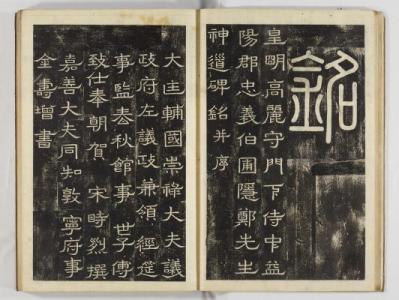 銘
皇明高麗守門下侍中益
陽郡忠義伯圃隱鄭先生
神道碑銘并序
大匡輔國崇祿大夫議
政府左議政兼領 經筵
事監春秋館事 世子傅
致仕奉朝賀 宋時烈撰
嘉善大夫同知敦寧府事
金壽增書